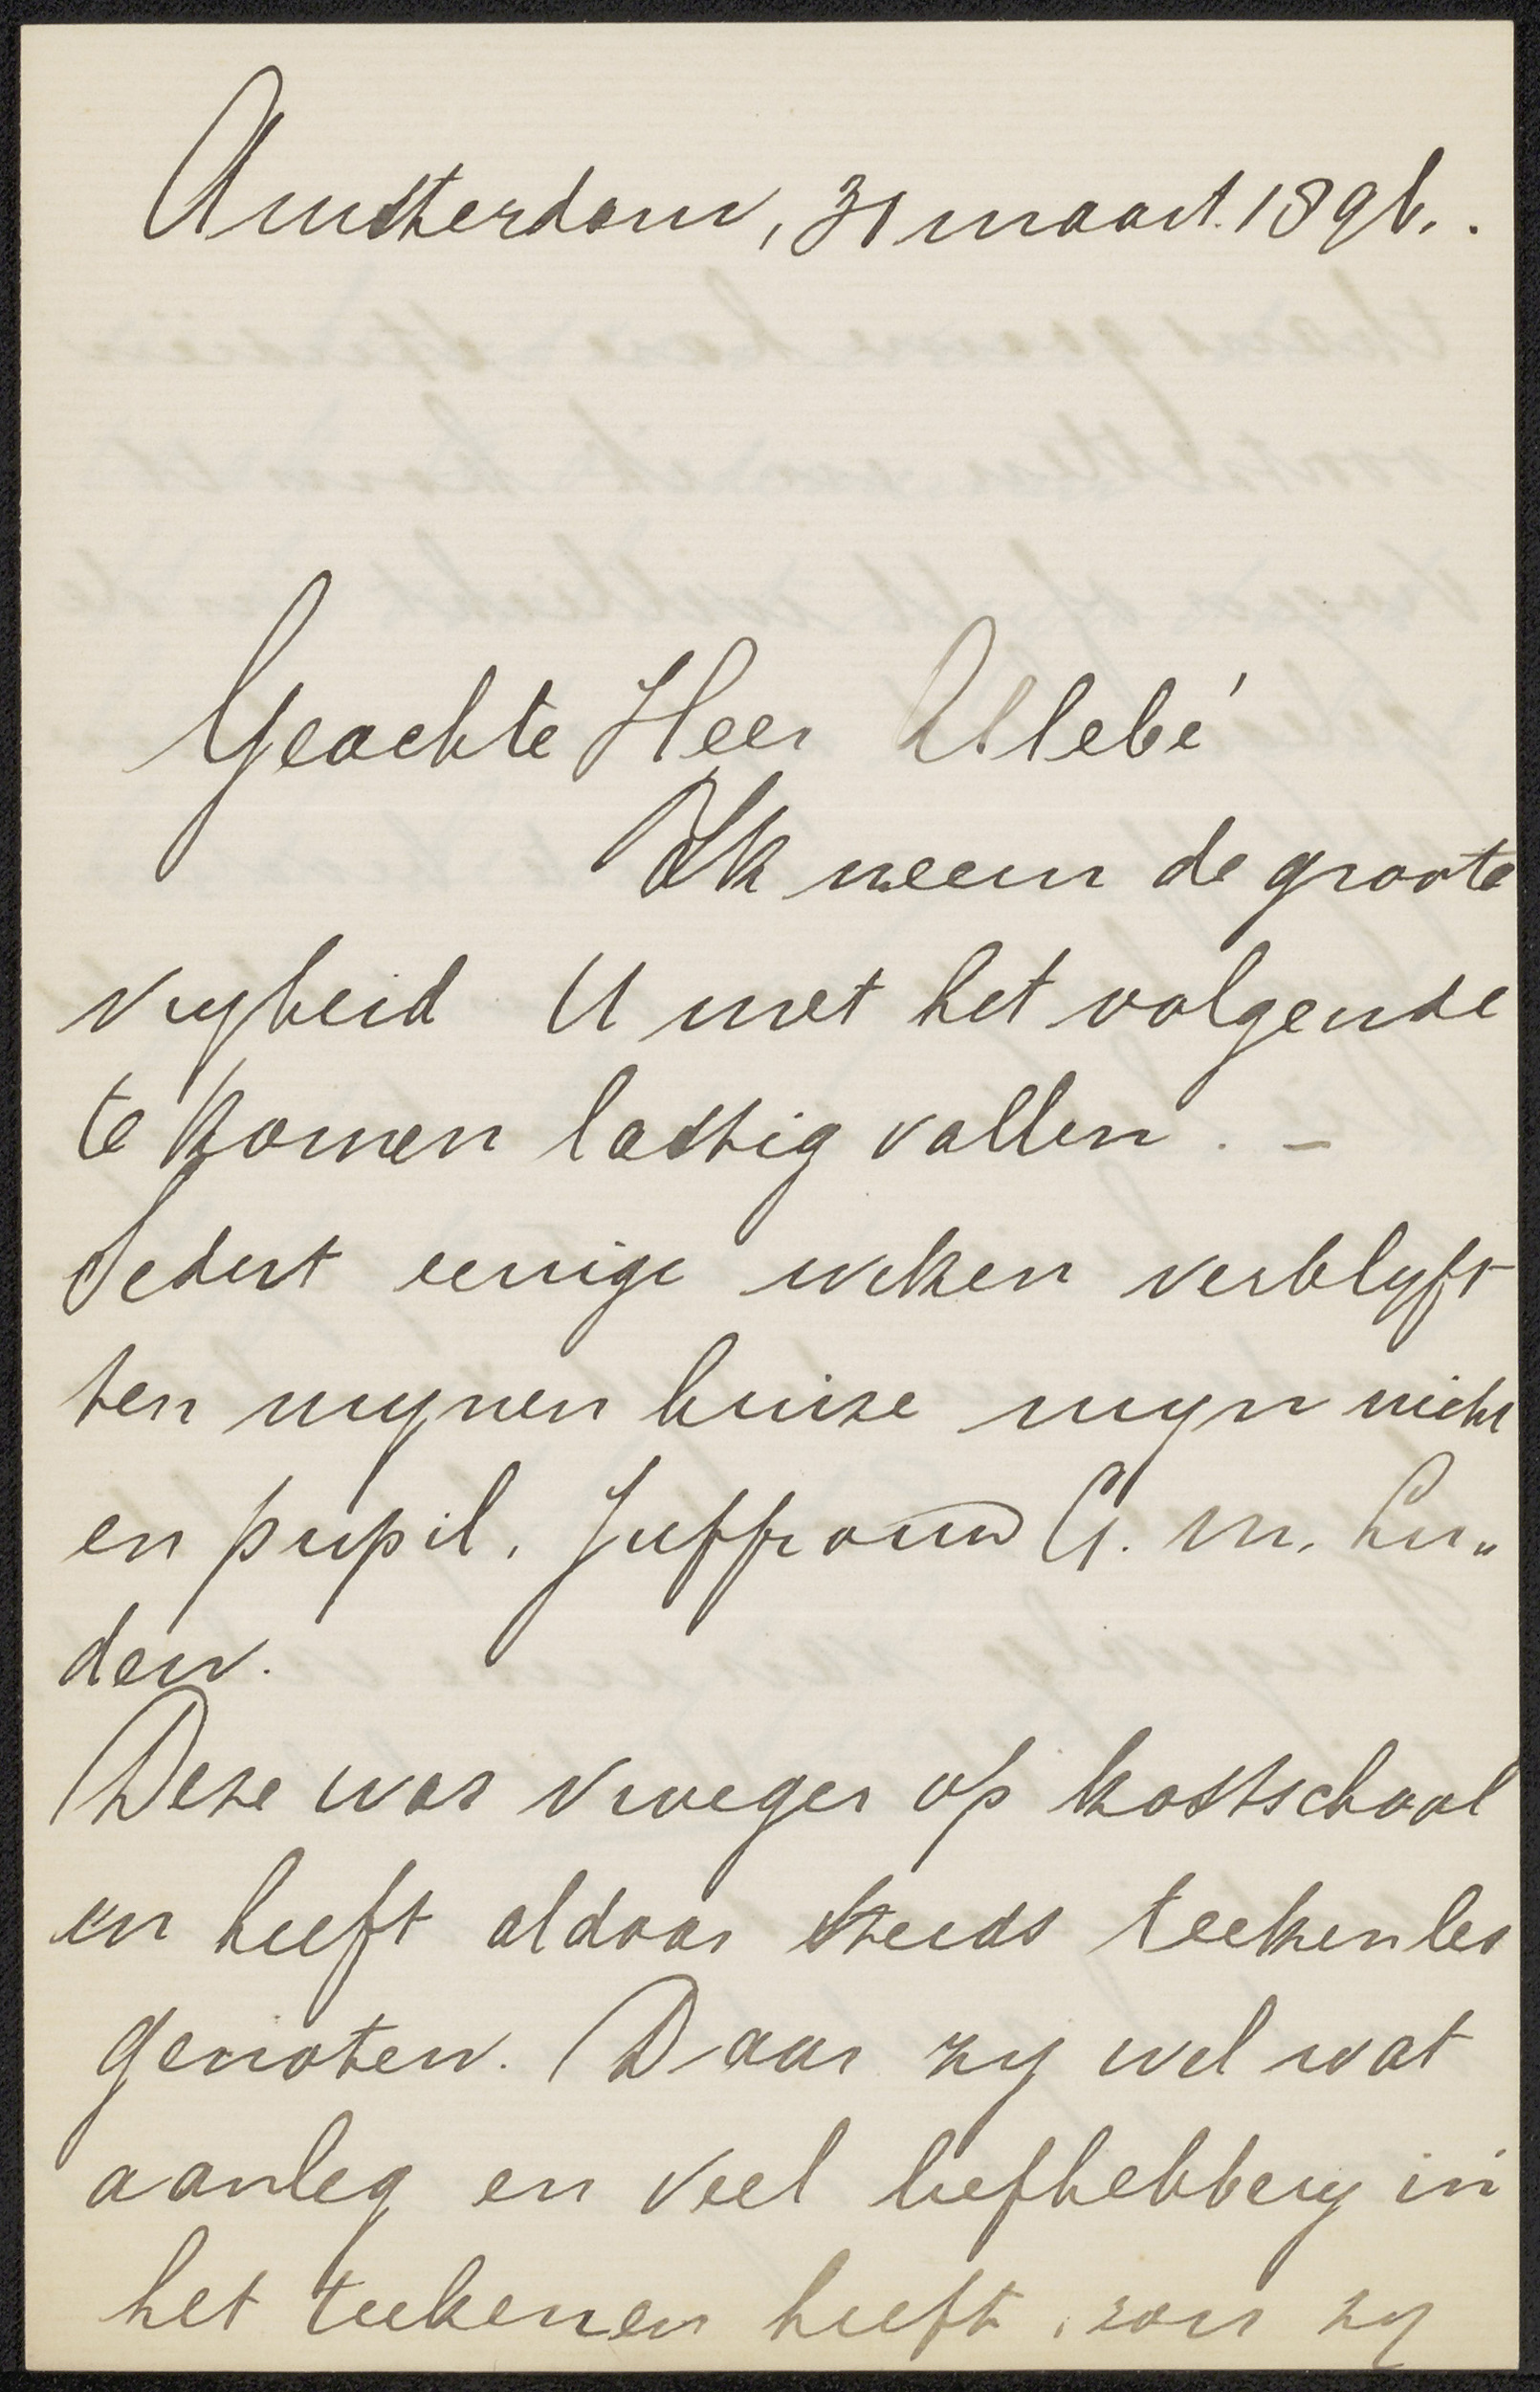 Amsterdam, 31 maart. 1896.
Geachte Heer Allebé
Ik neem de groote
vryheid U met het volgende
te komen lastig vallen. –
Sedert eenige weken verblyft
ten mynen huize myn nicht
en pupil, Juffrouw G. M. Lu„
den.
Deze was vroeger op kostschool
en heeft aldaar steeds teekenles
genoten. Daar zy wel wat
aanleg en veel liefhebbery in
het teekenen heeft, zou zy